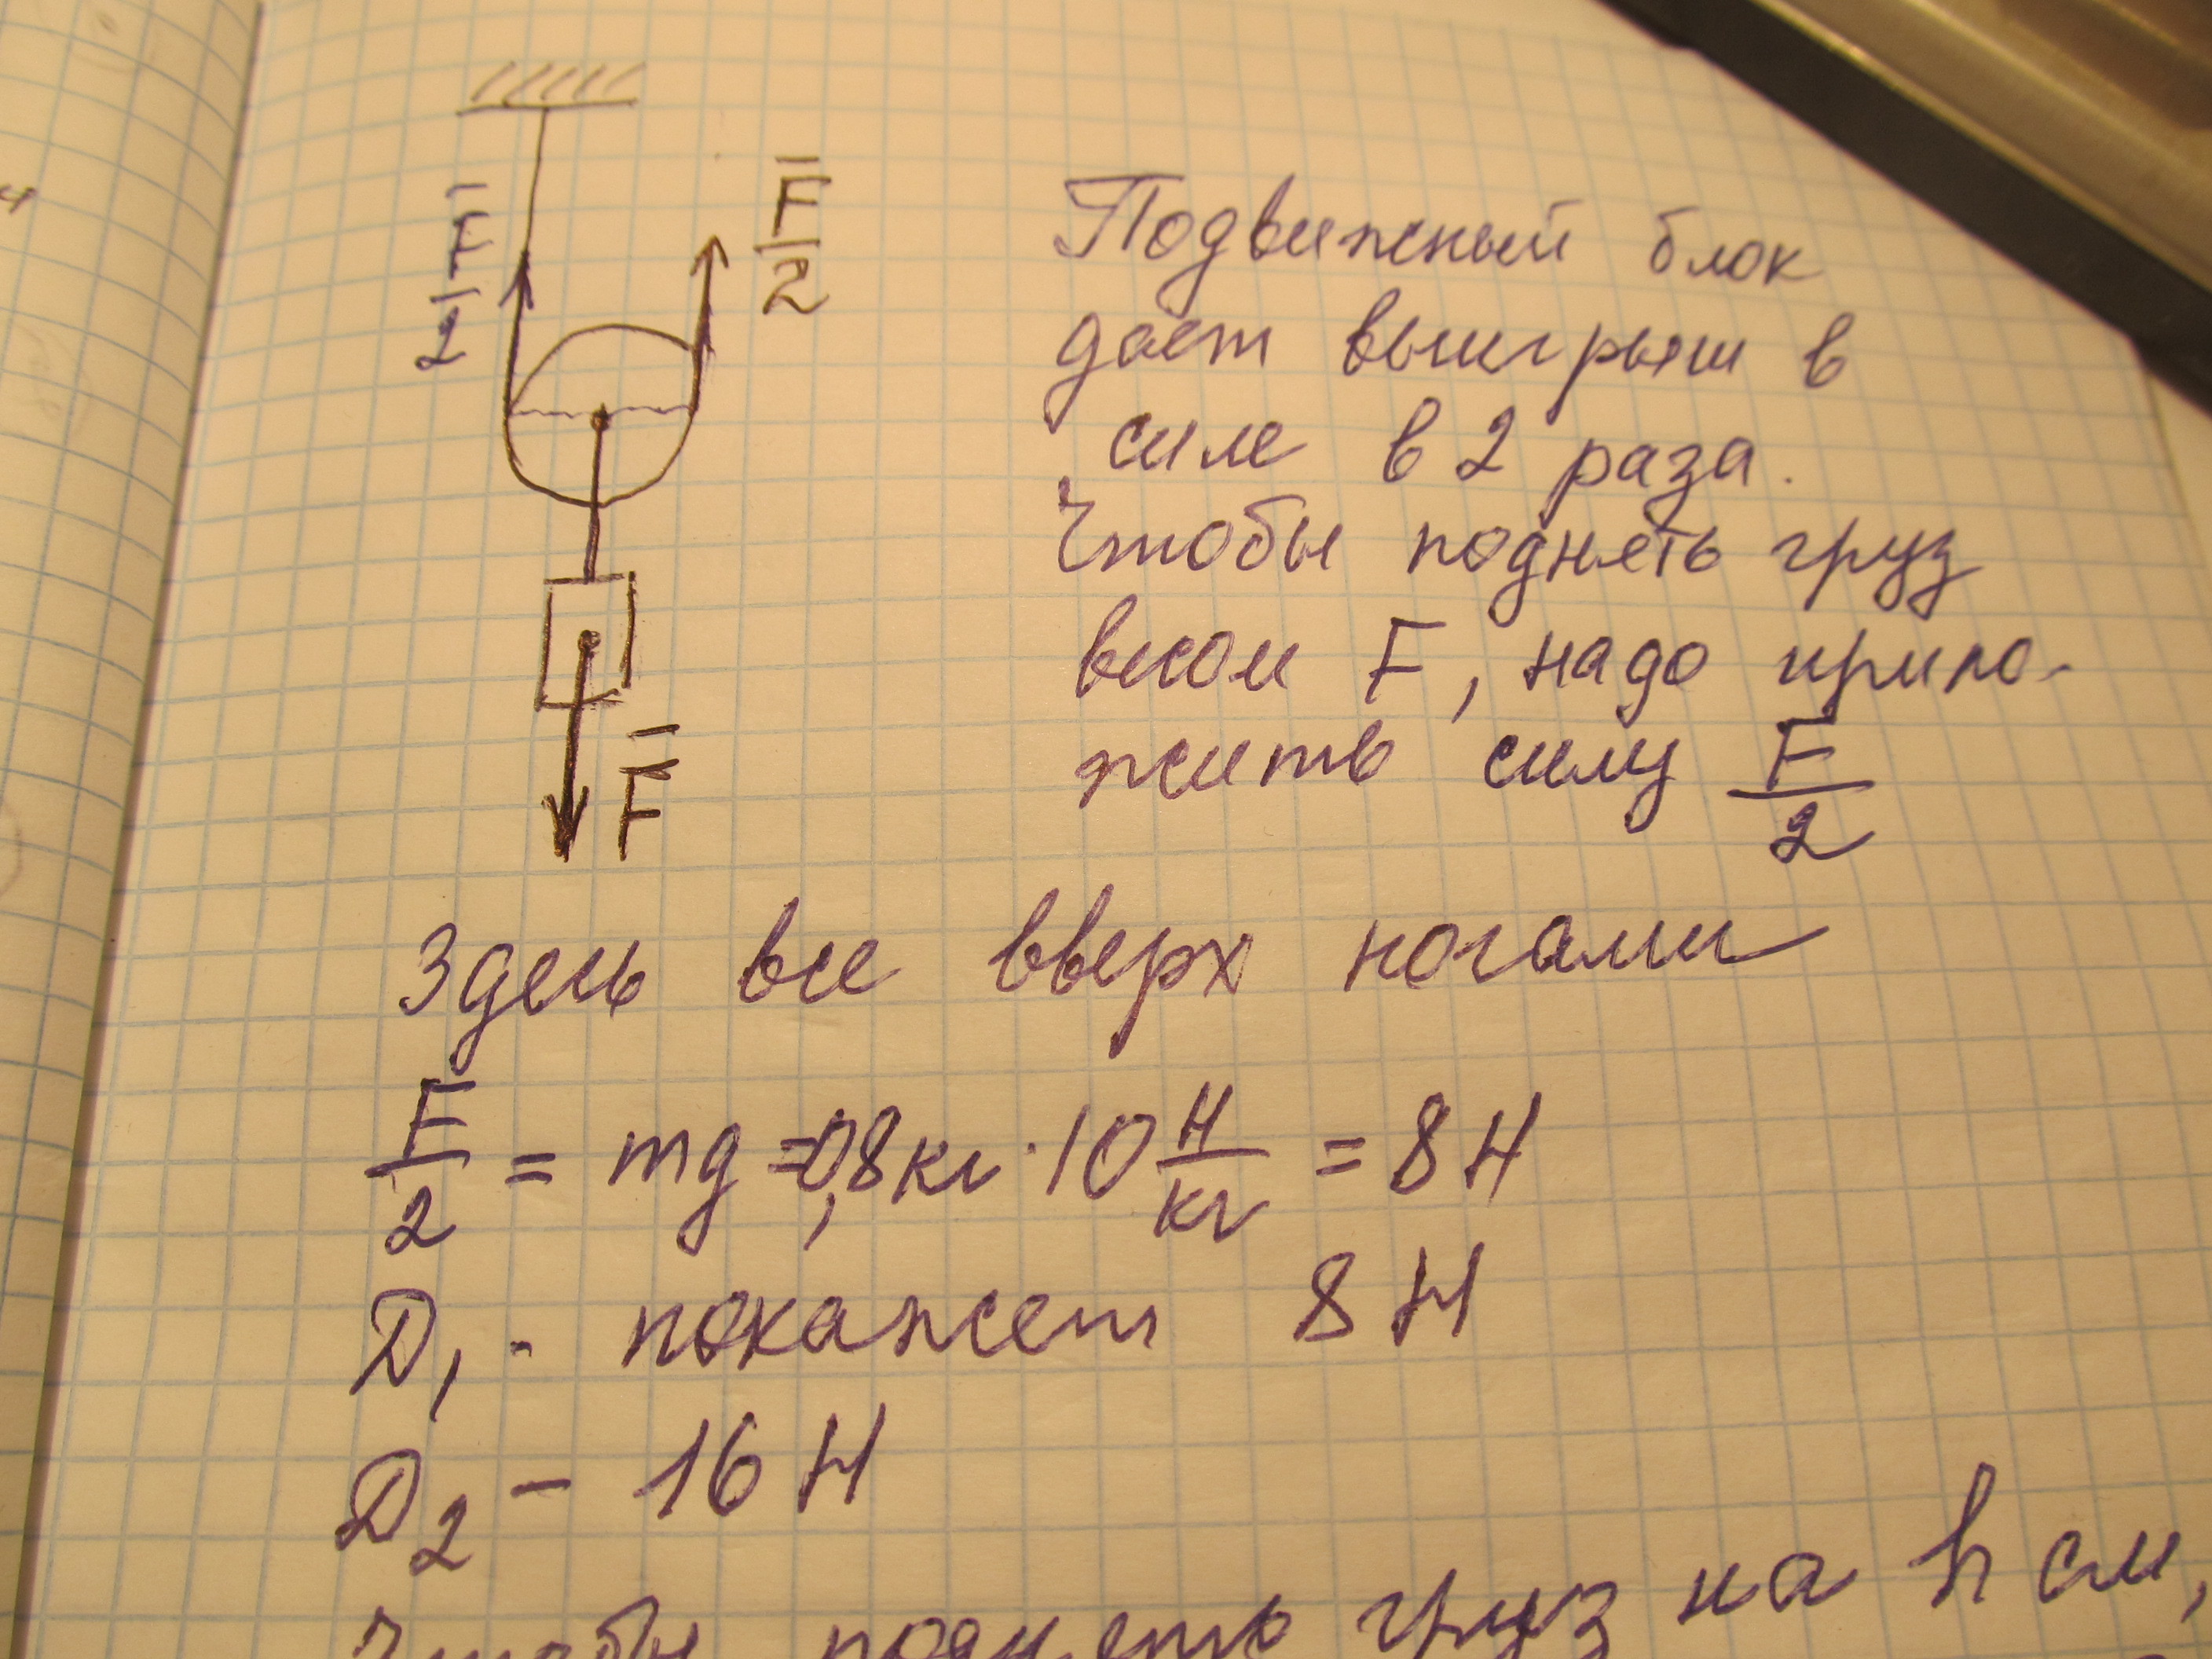 F/2
F/2
F
Подвижный блок
дает выигрыш в
силе в 2 раза.
Чтобы поднять груз
весом F, надо прило-
жить силу F/2
Здесь все вверх ногами
F/2 = mg = 0,8 кг · 10 Н/кг = 8 Н
D1 - покажет 8 Н
D2 – 16 Н
Чтобы поднять груз на h см,